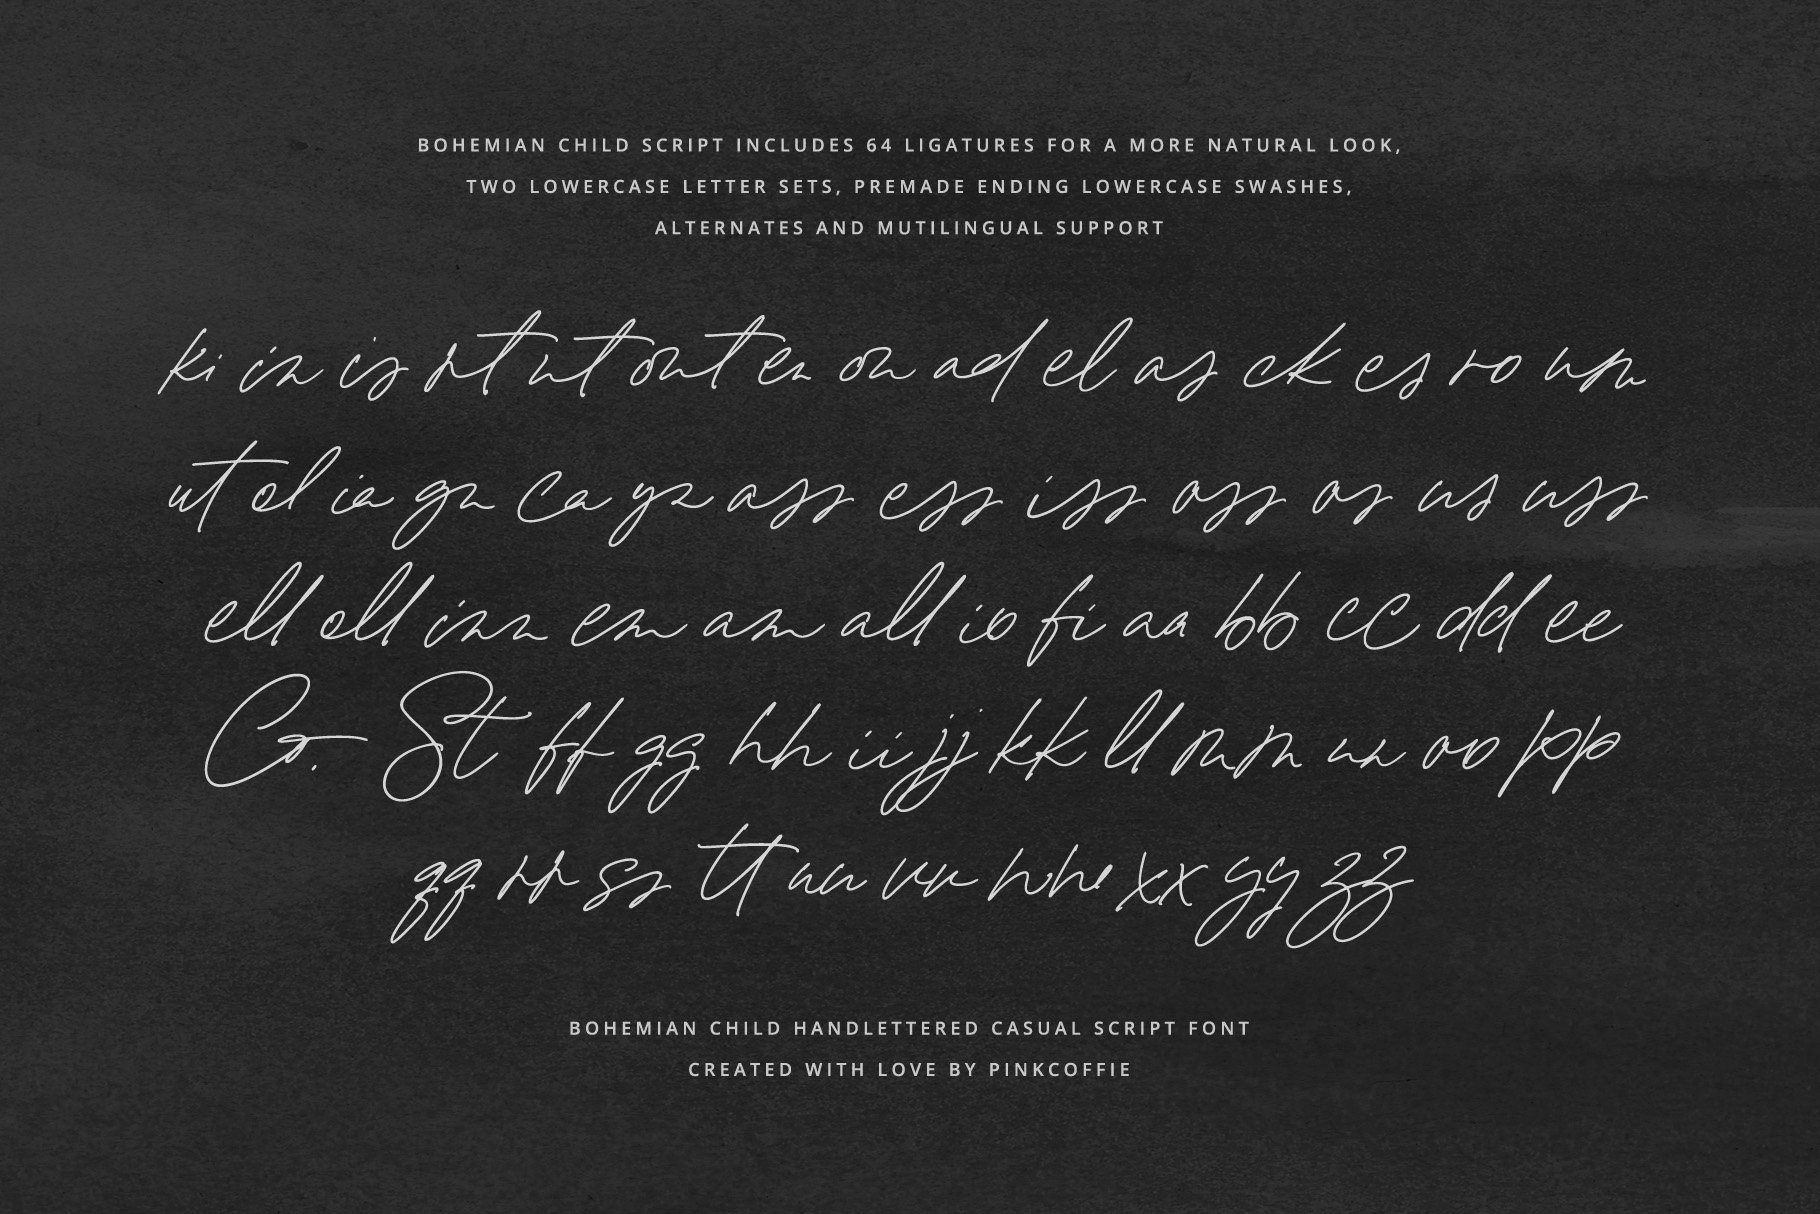 BOHEMIAN CHILD SCRIPT INCLUDES 64 LIGATURES FOR A MORE NATURAL LOOK,
TWO LOWERCASE LETTER SETS, PREMADE ENDING LOWERCASE SWASHES,
ALTERNATES AND MUTILINGUAL SUPPORT
ki in is rt nt ont en on ad el as ck es ro um
ut ol ia gn Ca yn ass ess iss oss os us uss
ell oll inn em am all io fi aa bb cc dd ee
Co. St ff gg hh ii jj kk ll mm nn oo pp
qq rr ss tt uu vv ww xx yy zz
BOHEMIAN CHILD HANDLETTERED CASUAL SCRIPT FONT
CREATED WITH LOVE BY PINKCOFFIE